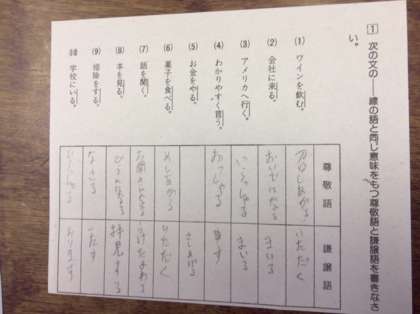 1 次の文の――線の語と同じ意味をもつ尊敬語と謙譲語を書きなさ
い。
尊敬語 謙譲語
(1) ワインを飲む。 召しあがる いただく
(2) 会社に来る。 おいでになる まいる
(3) アメリカへ行く。 いらっしゃる まいる
(4) わかりやすく言う。 おっしゃる 申す
(5) お金をやる。 さしあげる
(6) 菓子を食べる。 めしあがる いただく
(7) 話を聞く。 お聞きになる うけたまわる
(8) 本を見る。 ごらんになる 拝見する
(9) 掃除をする。 なさる いたす
(10) 学校にいる。 いらっしゃる おります